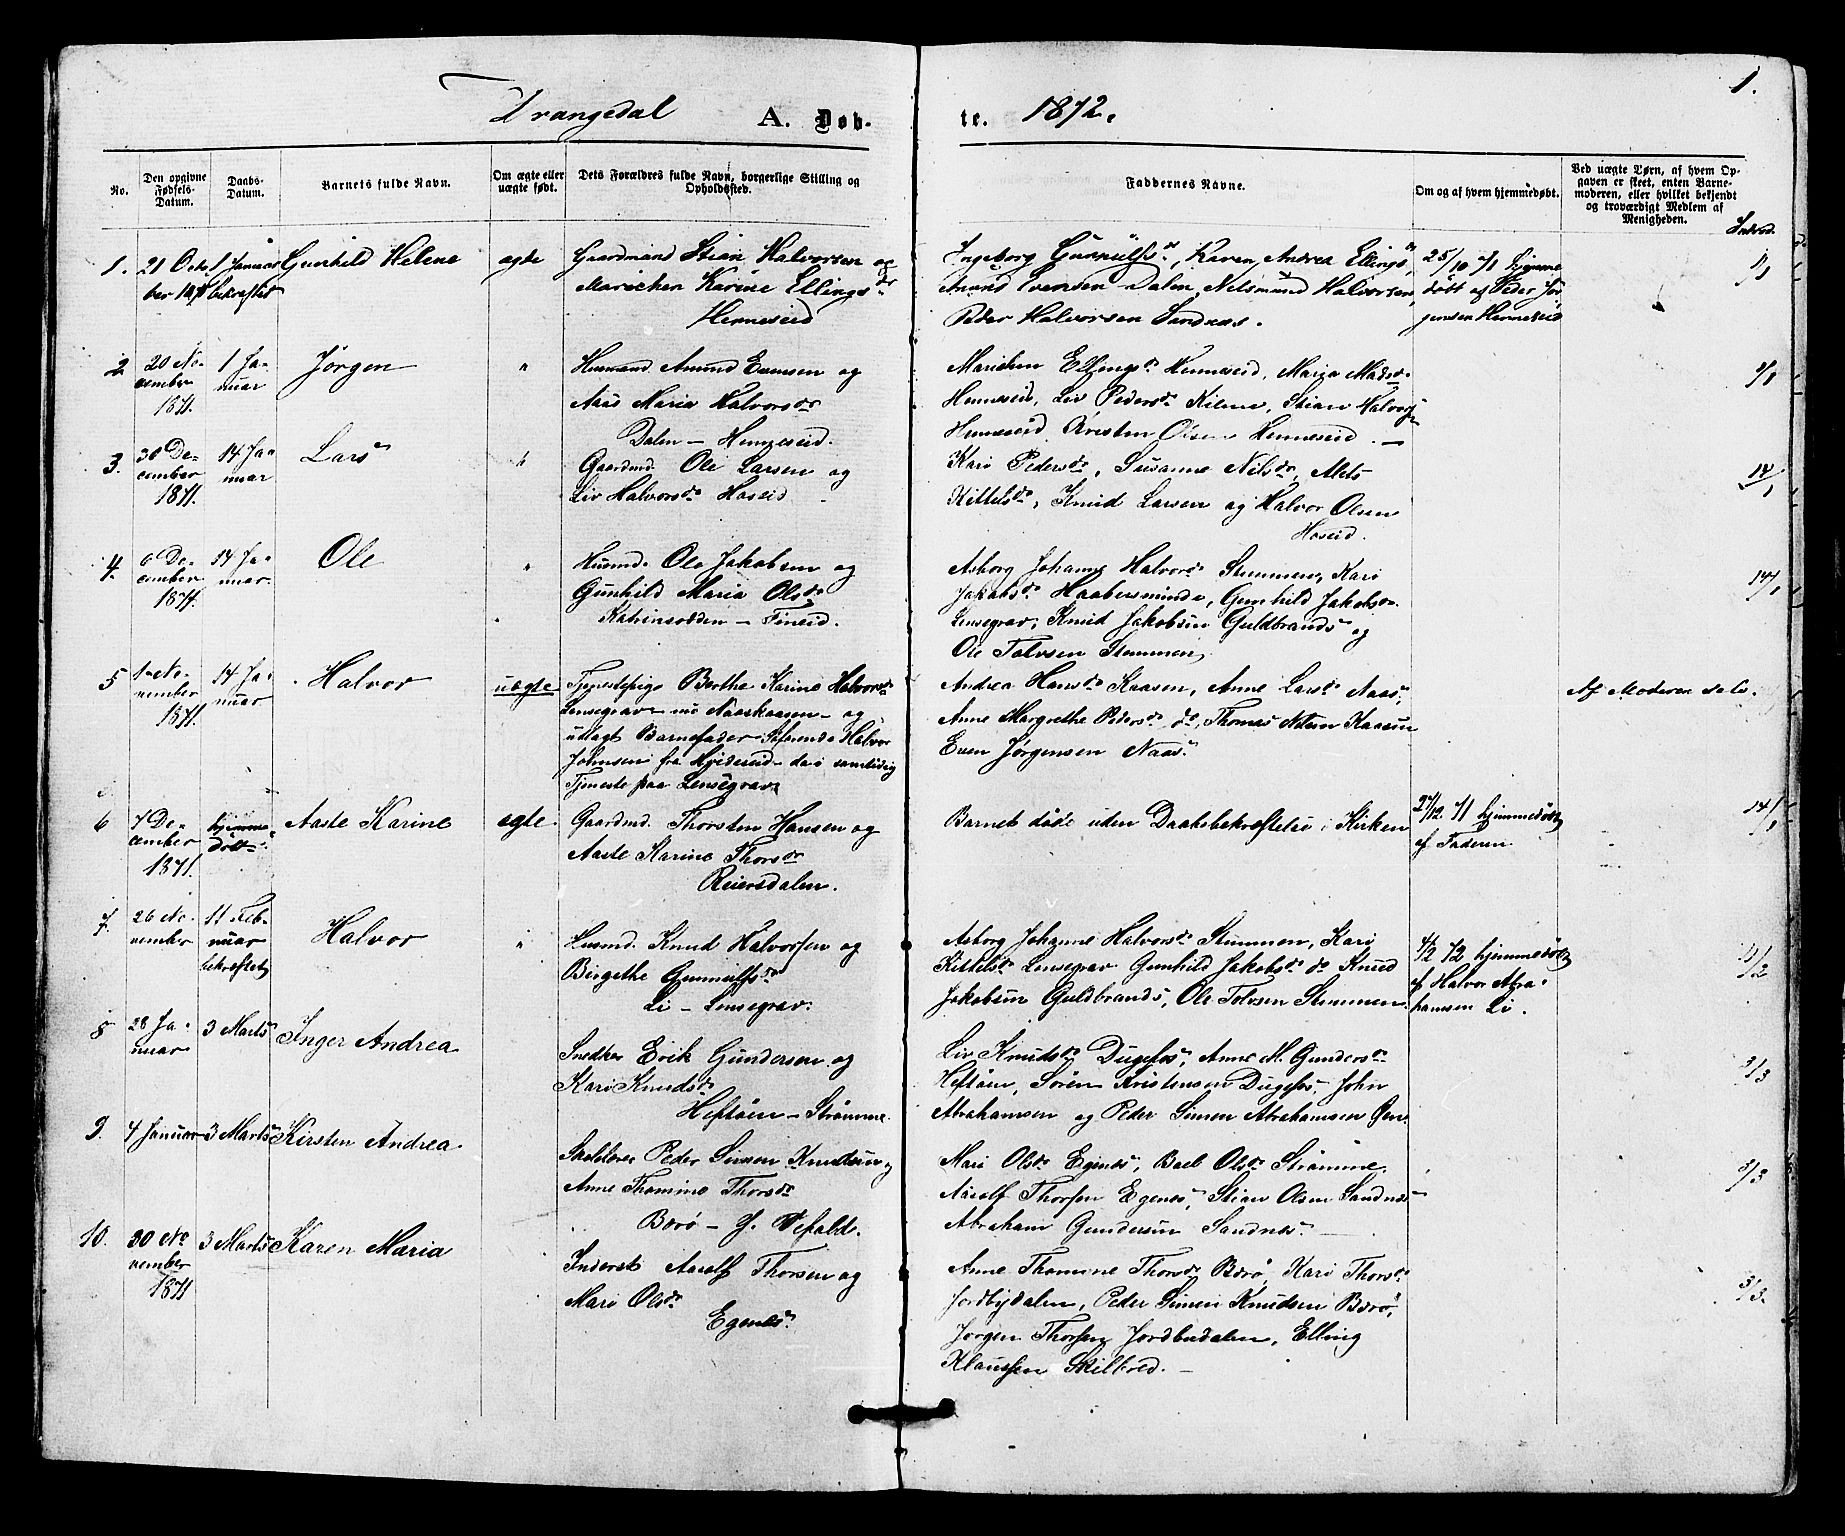 1.
Drangedal A. Døb- te. 1872.
No.
Den opgivne Fødsels-Datum.
Daabs-Datum.
Barnets fulde Navn.
Om ægte eller uægte født.
Dets Forældres fulde Navn, borgerlige Stilling og Opholdssted.
Faddernes Navne.
Om og af hvem hjemmedøbt.
Ved uægte Børn, af hvem Opgaven er skeet, enten Barnemoderen, eller hvilket bekjendt og troværdigt Medlem af Menigheden.
1.
21 Octo
ber 1871
1 Januar
bekræftet
Gunhild Helene
ægte
Gaardmand Stian Halvorsen og
Marichen Karine Ellingsdr
Henneseid
Ingeborg Gunnulfsdr, Karen Andrea Ellingsdr,
Amund Evensen Dalen, Nelsmund Halvorsen,
Peder Halvorsen Sandnæs.
25/10 71 hjemme
døbt af Peder Jør
gensen Henneseid
1/1
2
20 No-
vember
1871.
1 Ja-
nuar
Jørgen
"
Husmand Amund Evensen og
Aase Maria Halvorsdr
Dalen - Henneseid.
Marichen Ellingsdr Henneseid, Maria Madsdr
Henneseid, Liv Pedersdr Kilene, Stian Halvors
Henneseid, Kristen Olsen Henneseid. -
1/1
3.
30 De-
cember
1871.
14 Ja-
nuar
Lars
"
Gaardmd. Ole Larsen og
Liv Halvorsdr Hoseid
Kari Pedersdr, Susanne Nilsdr,
Kittelsdr, Knud Larsen og Halvor Olsen
Hoseid.
14/1
4.
6 De-
cember
1871.
14 Ja-
nuar
Ole
"
Husmd. Ole Jakobsen og
Gunhild Maria Olsdr
Katrinsodden - Fineid.
Asborg Johanne Halvorsdr Stemmen, Kari
Jakobsdr Haabersminde, Gunhild Jakobsdr
Lensegrav, Knud Jakobsen Guldbrands og
Ole Tolvsen Stemmen
14/1
5
1 No-
vember
1871.
14 Ja-
nuar
Halvor
uægte
Tjenestepige Berthe Karine Halvorsdr
Lensegrav nu Naaskaasen - og
udlagt Barnefader Søfarende Halvor
Johnsen fra - da i samtidig
Tjeneste paa Lensegrav
Andrea Hansdr Kaasen, Anne Larsdr Naas,
Anne Margrethe Pedersdr do, Thomas Nilsen Kaasen
Even Jørgensen Naas.
Af Moderen selv.
6
7 De-
cember
1871.
hjemme
døbt
Aaste Karine
ægte
Gaardmd. Thorsten Hansen og
Aaste Karine Thorsdr
Reiersdalen.
Barnet døde uden Daabsbekræftelse i Kirken
27/12 71 hjemmedøbt
af Faderen
14/1
7.
26 No-
vember
11 Feb-
ruar
bekræftet
Halvor
"
Husmd. Knud Halvorsen og
Birgethe Gunnulfsdr
Li - Lensegrav.
Asborg Johanne Halvorsdr Stemmen, Kari
Kittelsdr Lensegrav Gunhild Jakobsdr do Knud
Jakobsen Guldbrands, Ole Tolvsen Stemmen.
4/2 72 hjemmedøbt
af Halvor Abra-
hamsen Li.
11/2
8
28 Ja-
nuar
3 Marts
Inger Andrea
Snedker Erik Gundersen og
Kari Knudsdr
Heftøen - Strømme
Liv Knudsdr Dugefos, Anne M. Gundersdr
Heftøen, Søren Kristensen Dugefos, John
Abrahamsen og Peder Simon Abrahamsen Øen.
3/3
9.
4 Januar
3 Marts
Kirsten Andrea
Peder Simon Knudsen og
Anne Thomine Thorsdr
Børø
Mari Olsdr Egenes, Boel Olsdr Strømme,
Aarolf Thorsen Egenes, Stian Olsen Sandnes
Abraham Gundersen Sandnes -
3/3
10.
30 No
vember
1871
3 Marts
Karen Maria
Inderst Aarolf Thorsen og
Mari Olsdr
Egenes.
Anne Thomine Thorsdr Børø, Kari Thorsdr
Jordbydalen, Peder Simon Knudsen Børø,
Jørgen Thorsen Jordbudalen, Elling
Klaussen Skilbred. -
3/3.